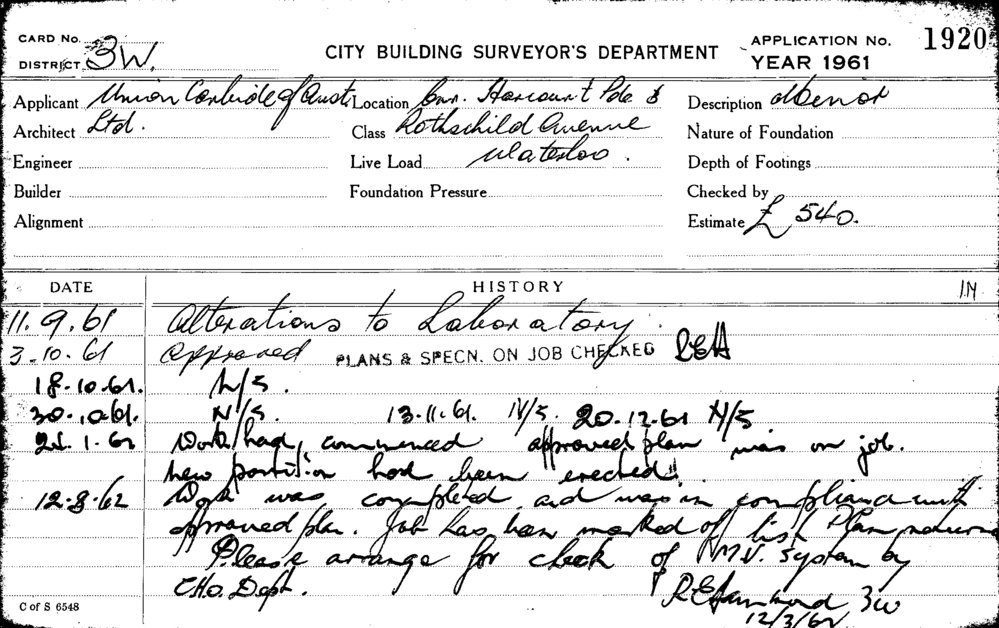 CARD No.
DISTRICT 3W.
CITY BUILDING SURVEYOR'S DEPARTMENT
APPLICATION No. 1920
YEAR 1961
Applicant Union Carbide of Aust. Location Cnr. Harcourt Pde & Description Minor
Architect Ltd. Class Rothschild Avenue Nature of Foundation
Engineer Live Load Waterloo. Depth of Footings
Builder Foundation Pressure Checked by
Alignment Estimate £ 540.
DATE HISTORY
11.9.61 Alterations to Laboratory.
3.10.61 Approved PLANS & SPECN. ON JOB CHECKED REH
18.10.61. N/S.
30.10.61. N/S. 13.11.61. N/S. 20.12.61 N/S
1.62 Work had commenced approved plan was on job.
New partition had been erected.
12.3.62 Work was completed and was in compliance with
approved plan. Job has been marked off list Plan returned
Please arrange for check of M.V. System by
C.H.O. Dept. R E Hammond 3W
12/3/62
C of S 6548